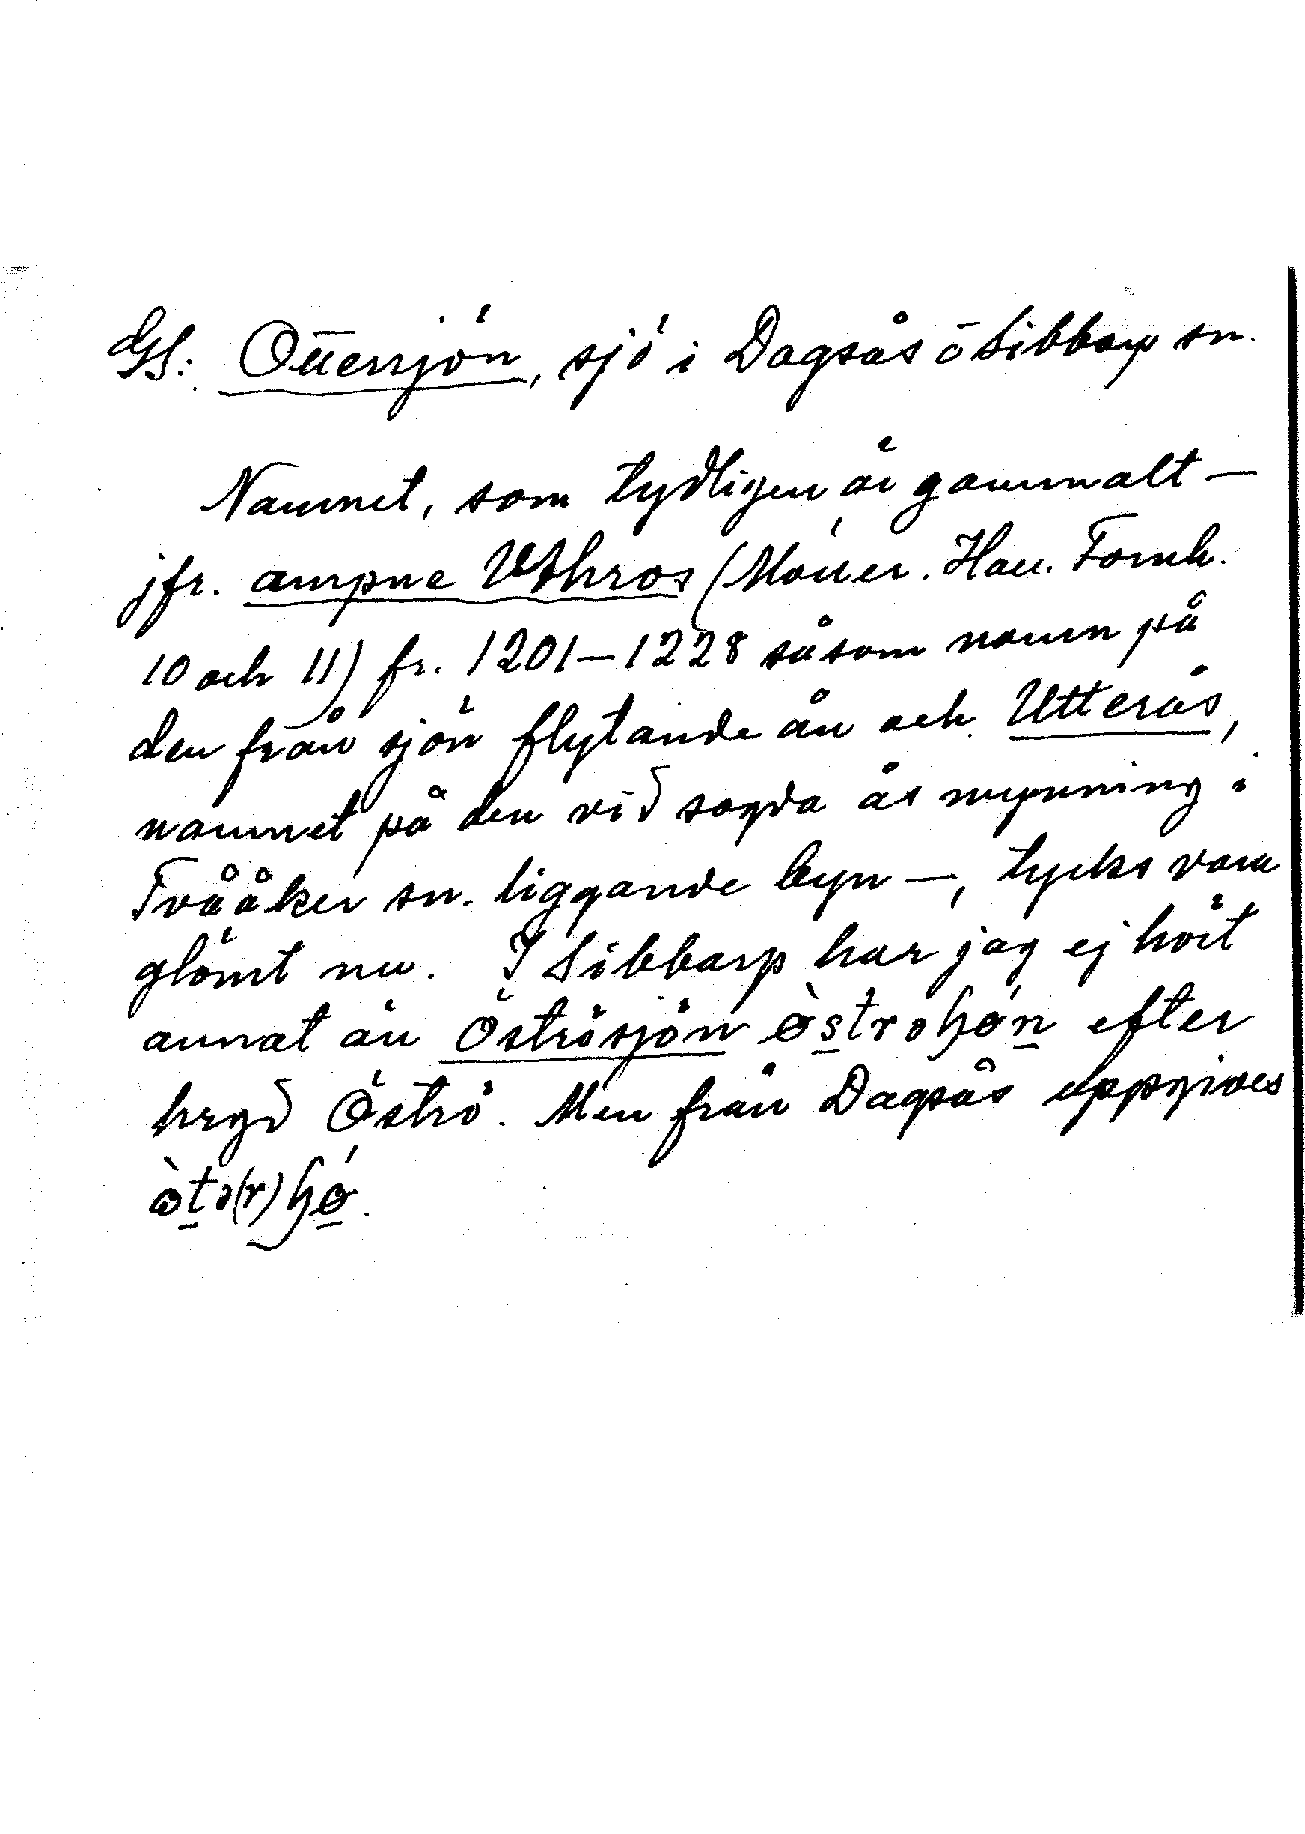 Gs: Ottersjön, sjö i Dagsås o Sibbarp sn.
Namnet, som tydligen är gammalt —
jfr. ampne Uthros (Möller. Hall. Fornh.
10 och 11) fr. 1201—1228 såsom namn på
den från sjön flytande ån och Utterås,
namnet på den vid sagda ås mynning i
Tvååker sn. liggande byn —, tycks vara
glömt nu. I Sibbarp har jag ej hört
annat än Öströsjön òstrəɧøn efter
hrgd Öströ. Men från Dagsås uppgives
òtə(r)ɧø.